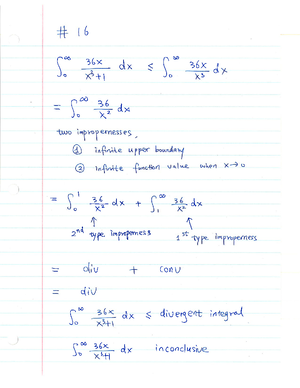 # 16
∫₀^∞ 36x/(x³+1) dx ≤ ∫₀^∞ 36x/x³ dx
= ∫₀^∞ 36/x² dx
two impropernesses,
① infinite upper boundary
② infinite function value when x→0
= ∫₀¹ 36/x² dx + ∫₁^∞ 36/x² dx
↑ ↑
2nd type improperness 1st type improperness
= div + conv
= div
∫₀^∞ 36x/(x³+1) dx ≤ divergent integral
∫₀^∞ 36x/(x³+1) dx inconclusive